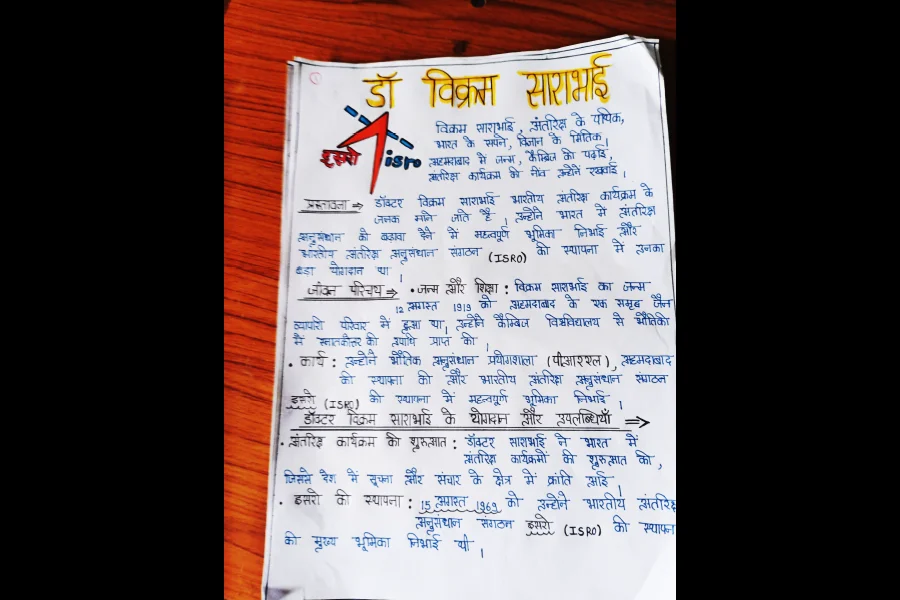 डॉ विक्रम साराभाई
इसरो isro
विक्रम साराभाई, अंतरिक्ष के पथिक,
भारत के सपने, विज्ञान के मितिक।
अहमदाबाद में जन्म, कैम्ब्रिज की पढ़ाई,
अंतरिक्ष कार्यक्रम की नींव उन्होंने रखवाई।
प्रस्तावना ⇒ डॉक्टर विक्रम साराभाई भारतीय अंतरिक्ष कार्यक्रम के
जनक माने जाते है। उन्होंने भारत में अंतरिक्ष
अनुसंधान को बढावा देने में महत्वपूर्ण भूमिका निभाई और
भारतीय अंतरिक्ष अनुसंधान संगठन (ISRO) की स्थापना में उनका
बडा योगदान था।
जीवन परिचय ⇒ • जन्म और शिक्षा : विक्रम साराभाई का जन्म
12 अगस्त 1919 को अहमदाबाद के एक समृद्ध जैन
व्यापारी परिवार में हुआ था, उन्होंने कैम्ब्रिज विश्वविद्यालय से भौतिकी
में स्नातकोत्तर की उपाधि प्राप्त की।
• कार्य : उन्होंने भौतिक अनुसंधान प्रयोगशाला (पीआरएल), अहमदाबाद
की स्थापना की और भारतीय अंतरिक्ष अनुसंधान संगठन
इसरो (ISRO) की स्थापना में महत्वपूर्ण भूमिका निभाई।
डॉक्टर विक्रम साराभाई के योगदान और उपलब्धियाँ ⇒
• अंतरिक्ष कार्यक्रम की शुरुआत : डॉक्टर साराभाई ने भारत में
अंतरिक्ष कार्यक्रमों की शुरुआत की,
जिससे देश में सूचना और संचार के क्षेत्र में क्रांति आई।
• इसरो की स्थापना : 15 अगस्त 1969 को उन्होंने भारतीय अंतरिक्ष
अनुसंधान संगठन इसरो (ISRO) की स्थापन
की मुख्य भूमिका निभाई थी।